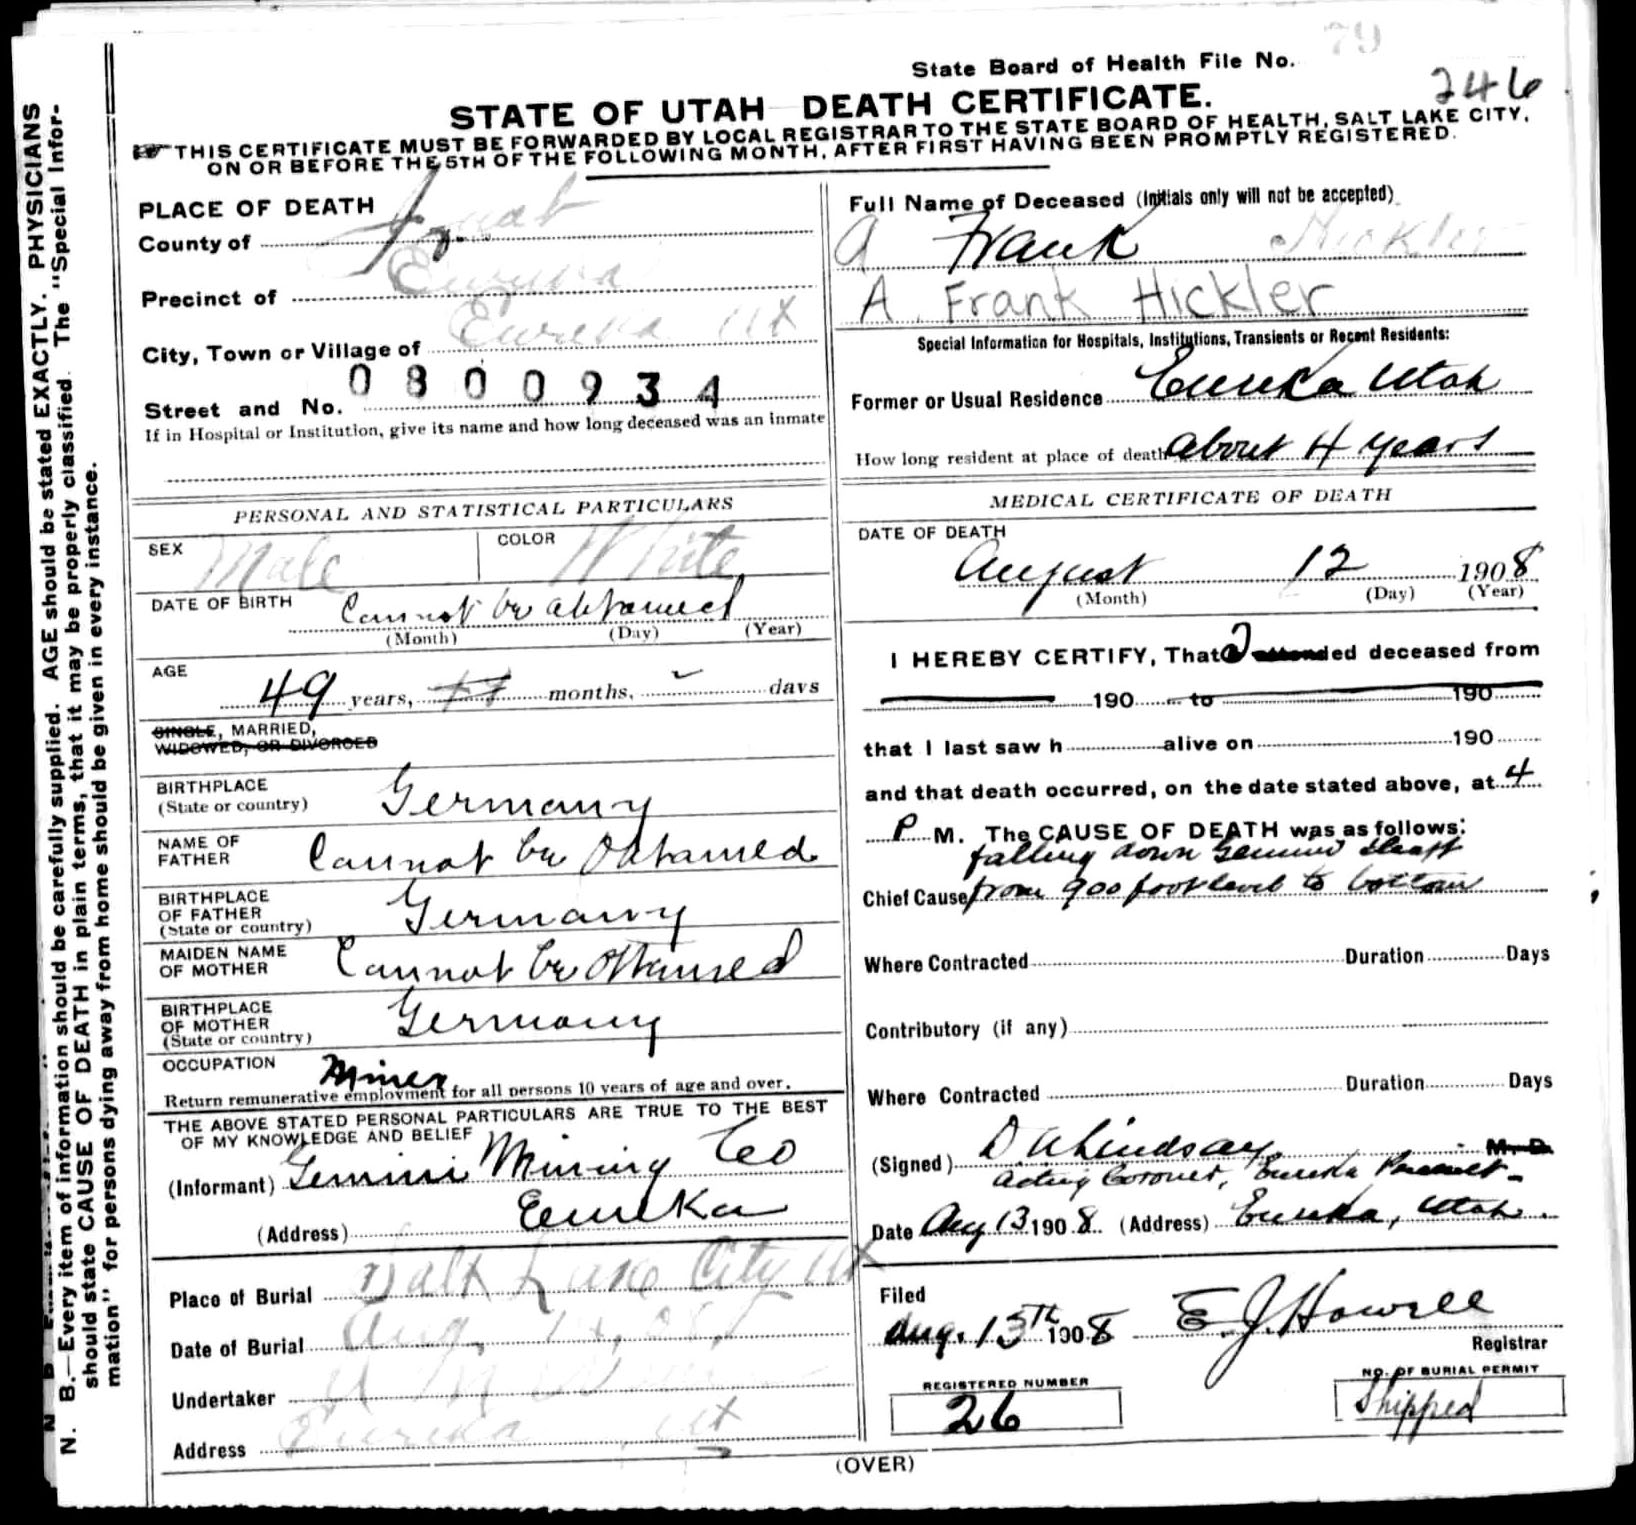 79
State Board of Health File No.
246
STATE OF UTAH DEATH CERTIFICATE.
THIS CERTIFICATE MUST BE FORWARDED BY LOCAL REGISTRAR TO THE STATE BOARD OF HEALTH, SALT LAKE CITY,
ON OR BEFORE THE 5TH OF THE FOLLOWING MONTH, AFTER FIRST HAVING BEEN PROMPTLY REGISTERED.
N. B.—Every item of information should be carefully supplied. AGE should be stated EXACTLY. PHYSICIANS
should state CAUSE OF DEATH in plain terms, that it may be properly classified. The "Special Infor-
mation" for persons dying away from home should be given in every instance.
PLACE OF DEATH
County of Juab
Precinct of Eureka
City, Town or Village of Eureka Ut
Street and No. 0800934
If in Hospital or Institution, give its name and how long deceased was an inmate
PERSONAL AND STATISTICAL PARTICULARS
SEX Male COLOR White
DATE OF BIRTH Cannot be obtained
(Month) (Day) (Year)
AGE
49 years, months, days
SINGLE, MARRIED,
WIDOWED, OR DIVORCED
BIRTHPLACE
(State or country) Germany
NAME OF
FATHER Cannot be Obtained
BIRTHPLACE
OF FATHER
(State or country) Germany
MAIDEN NAME
OF MOTHER Cannot be Obtained
BIRTHPLACE
OF MOTHER
(State or country) Germany
OCCUPATION Miner
Return remunerative employment for all persons 10 years of age and over.
THE ABOVE STATED PERSONAL PARTICULARS ARE TRUE TO THE BEST
OF MY KNOWLEDGE AND BELIEF
(Informant) Gemini Mining Co
(Address) Eureka
Place of Burial Salt Lake City Ut
Date of Burial Aug.
Undertaker
Address Eureka, Ut
Full Name of Deceased (Initials only will not be accepted)
A Frank Hickler
A. Frank Hickler
Special Information for Hospitals, Institutions, Transients or Recent Residents:
Former or Usual Residence Eureka Utah
How long resident at place of death about 4 years
MEDICAL CERTIFICATE OF DEATH
DATE OF DEATH
August 12 1908
(Month) (Day) (Year)
I HEREBY CERTIFY, That I attended deceased from
190 to 190
that I last saw h alive on 190
and that death occurred, on the date stated above, at 4
P M. The CAUSE OF DEATH was as follows:
falling down Gemini Shaft
Chief Cause from 900 foot level to bottom
Where Contracted Duration Days
Contributory (if any)
Where Contracted Duration Days
(Signed) D A Lindsay M. D.
Acting Coroner, Eureka Precinct
Date Aug 13 1908 (Address) Eureka, Utah.
Filed
Aug. 13TH 1908 E. J. Howell
Registrar
REGISTERED NUMBER
26
NO. OF BURIAL PERMIT
Shipped
(OVER)